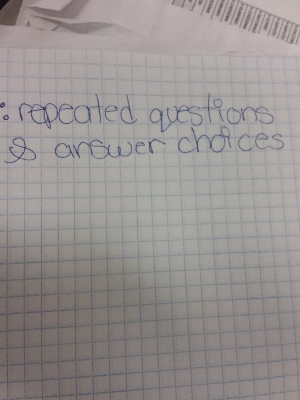 : repeated questions
& answer choices